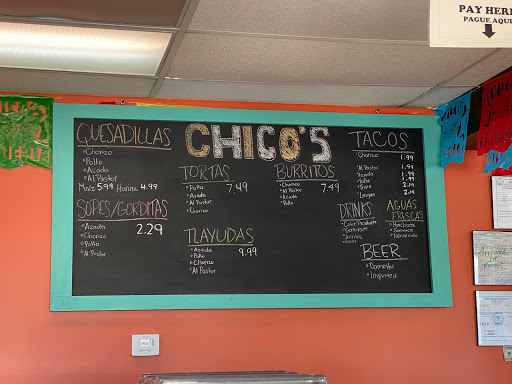 PAY HERE
PAGUE AQUI
CHICO'S
QUESADILLAS
Chorizo
Pollo
Azada
Al Pastor
Maiz 5.99 Harina 4.99
SOPES/GORDITAS
Azada 2.29
Chorizo
Pollo
Al Pastor
TORTAS
Pollo 7.49
Azada
Al Pastor
Chorizo
TLAYUDAS
Azada 9.99
Pollo
Chorizo
Al Pastor
BURRITOS
Chorizo 7.49
Al Pastor
Azada
Pollo
TACOS
Chorizo 1.99
Al Pastor 1.99
Azada 1.99
Pollo 1.99
Tripa 2.19
Lengua 2.19
DRINKS
Jarritos
AGUAS FRISCAS
Horchata
Jamaica
Tamarindo
BEER
Domestic
Imported